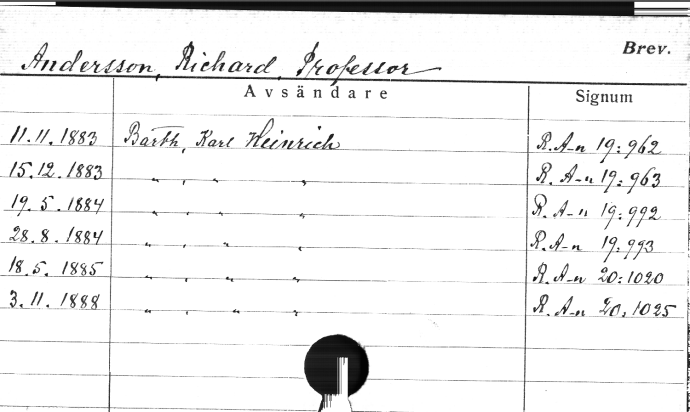 Brev.
Andersson, Richard, Professor
Avsändare Signum
11.11.1883 Barth, Karl Heinrich R. A-n 19:962
15.12.1883 " , " " R. A-n 19:963
19.5.1884 " , " " R. A-n 19:992
28.8.1884 " , " " R. A-n 19:993
18.5.1885 " , " " R. A-n 20:1020
3.11.1888 " , " " R. A-n 20:1025